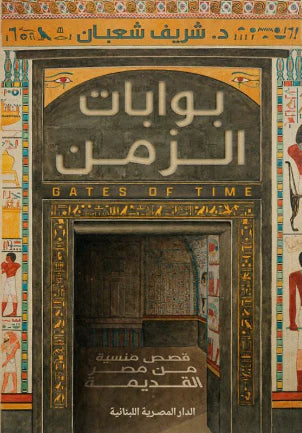 د. شريف شعبان
بوابات
الزمن
GATES OF TIME
قصص منسية
من مصر
القديمة
الدار المصرية اللبنانية